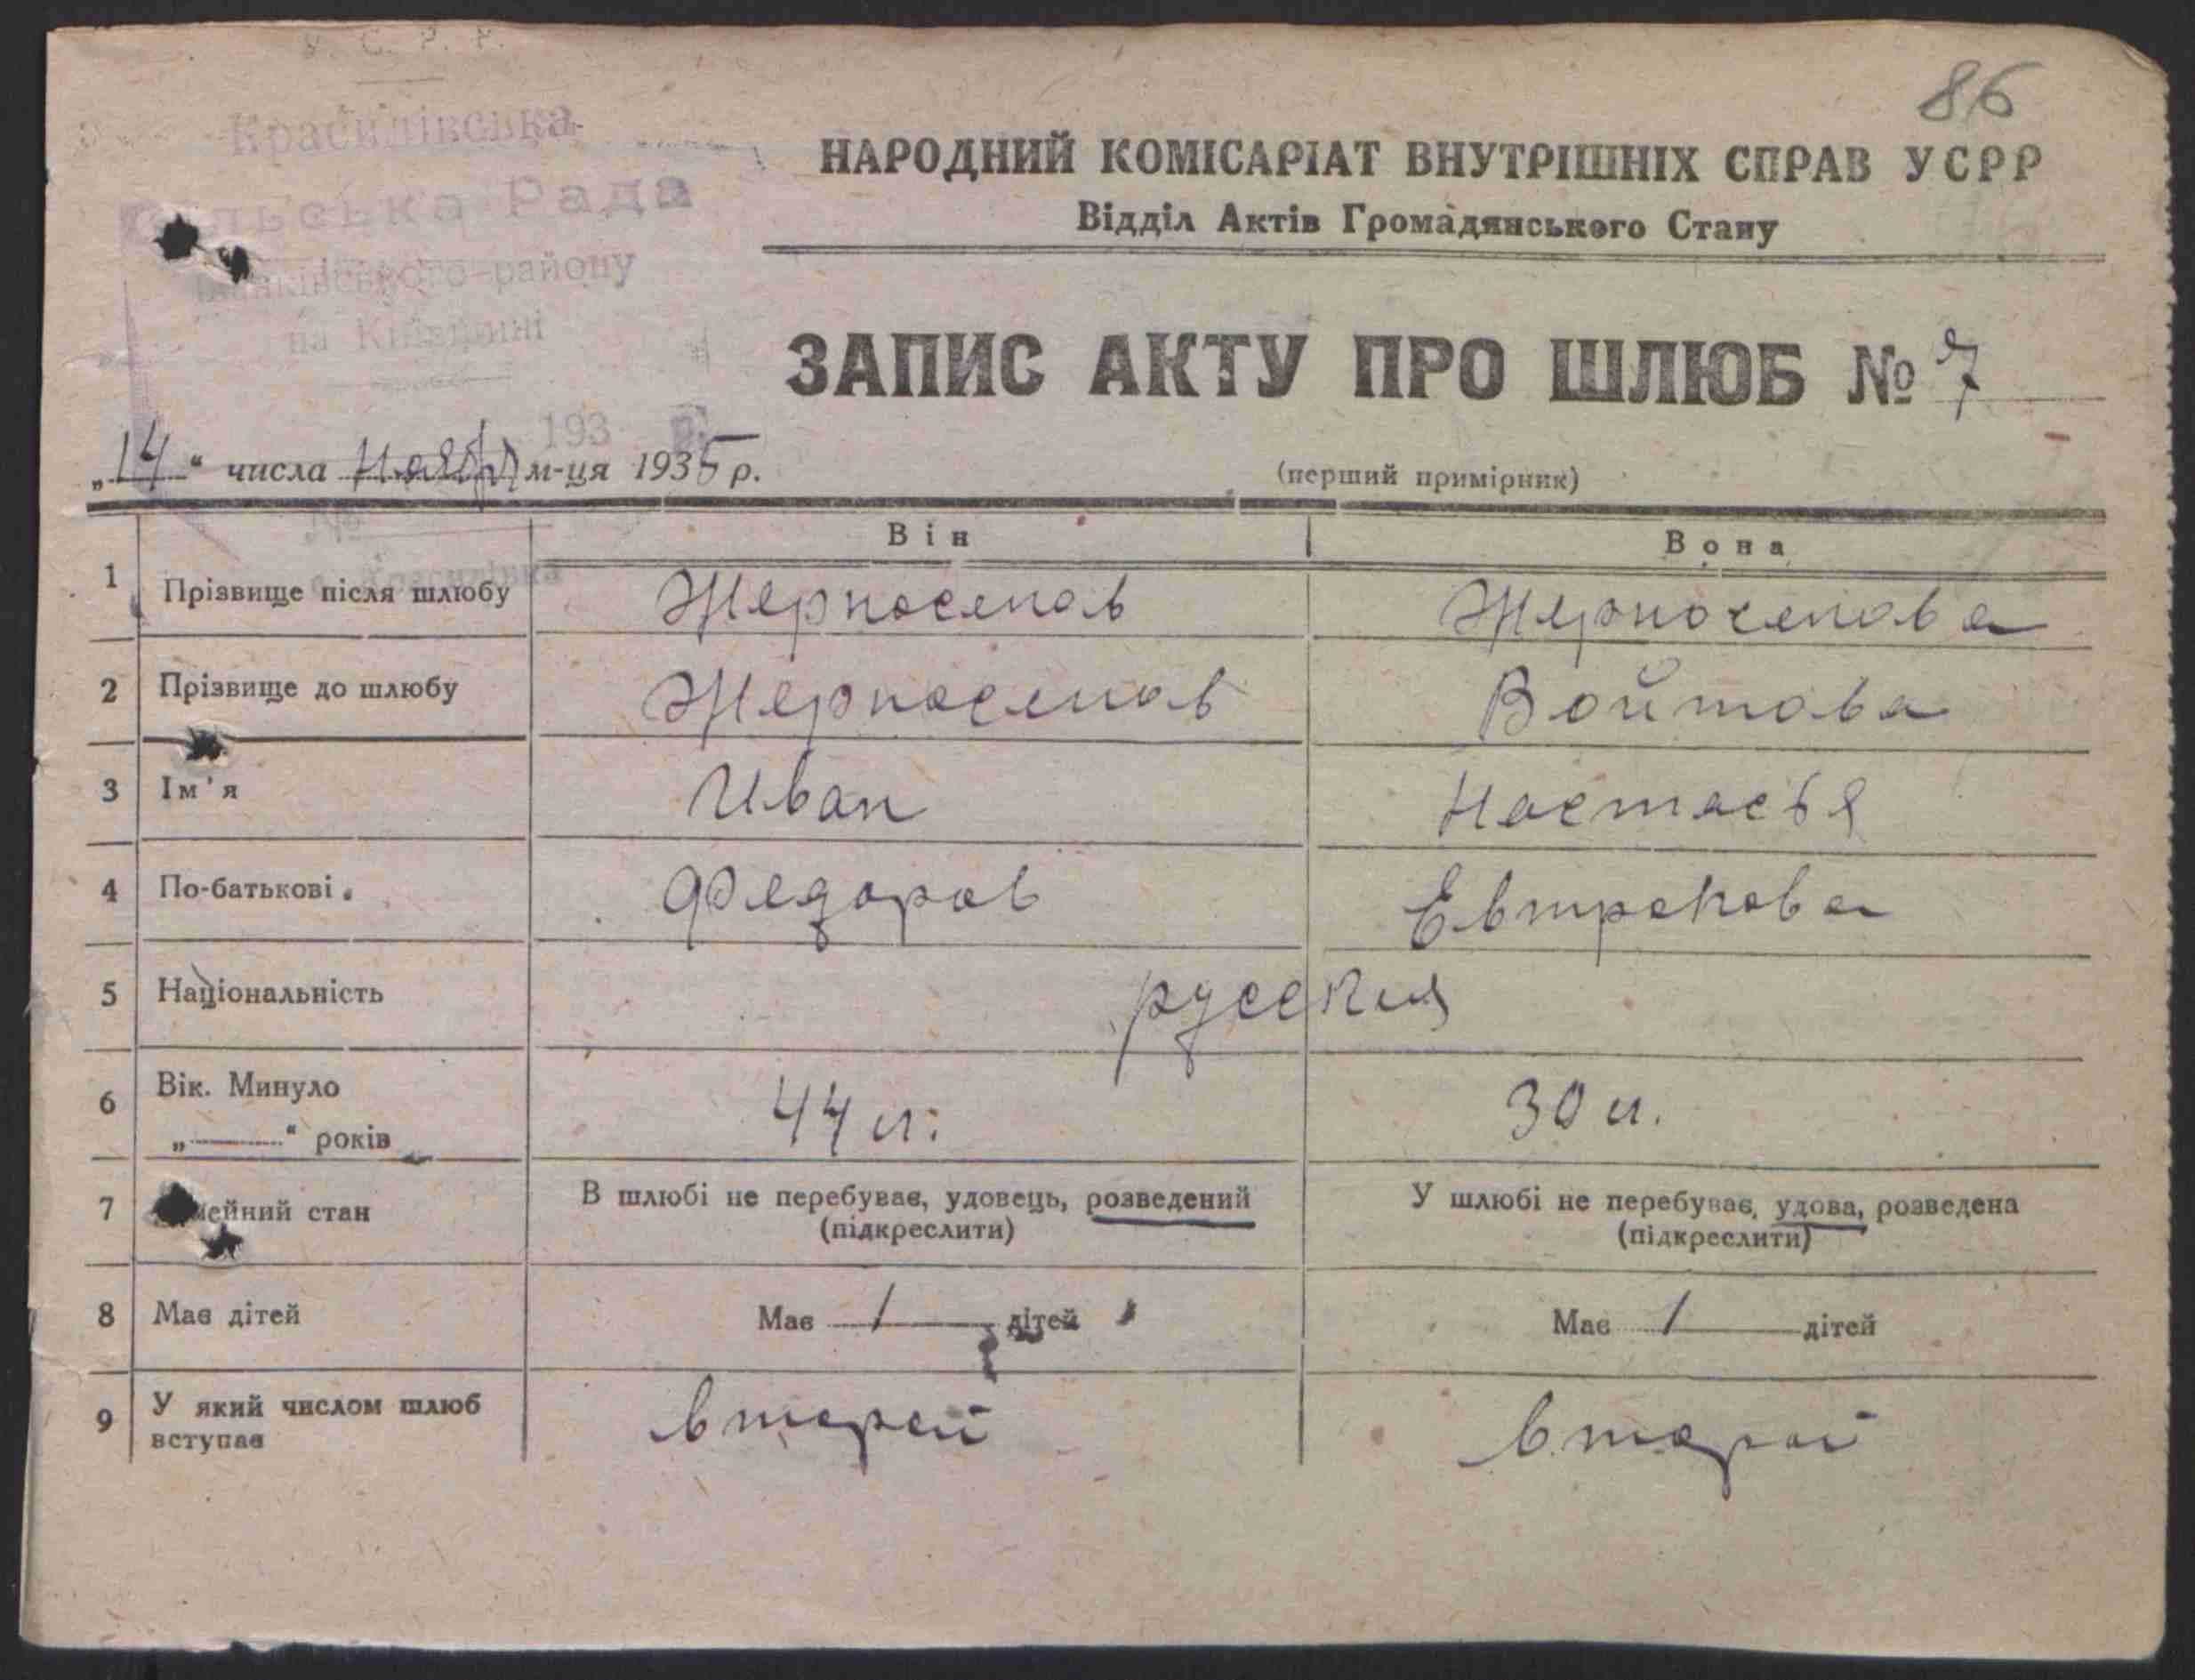 У. С. Р. Р.
86
Красилівська
Сільська Рада
Іванківського району
на Київщині
193 р.
НАРОДНИЙ КОМІСАРІАТ ВНУТРІШНІХ СПРАВ УСРР
Відділ Актів Громадянського Стану
ЗАПИС АКТУ ПРО ШЛЮБ № 7
„14“ числа Ноября м-ця 1935 р.
(перший примірник)
№
с. Красилівка
Він Вона
1 Прізвище після шлюбу Жерноселов Жерноселова
2 Прізвище до шлюбу Жерноселов Войтова
3 Ім'я Иван Настасья
4 По-батькові Федоров Евтрохова
5 Національність русския
6 Вік. Минуло
„ “ років 44 л. 30 л.
7 мейний стан В шлюбі не перебуває, удовець, розведений У шлюбі не перебуває, удова, розведена
(підкреслити) (підкреслити)
8 Має дітей Має 1 дітей Має 1 дітей
9 У який числом шлюб
вступає вторей второй